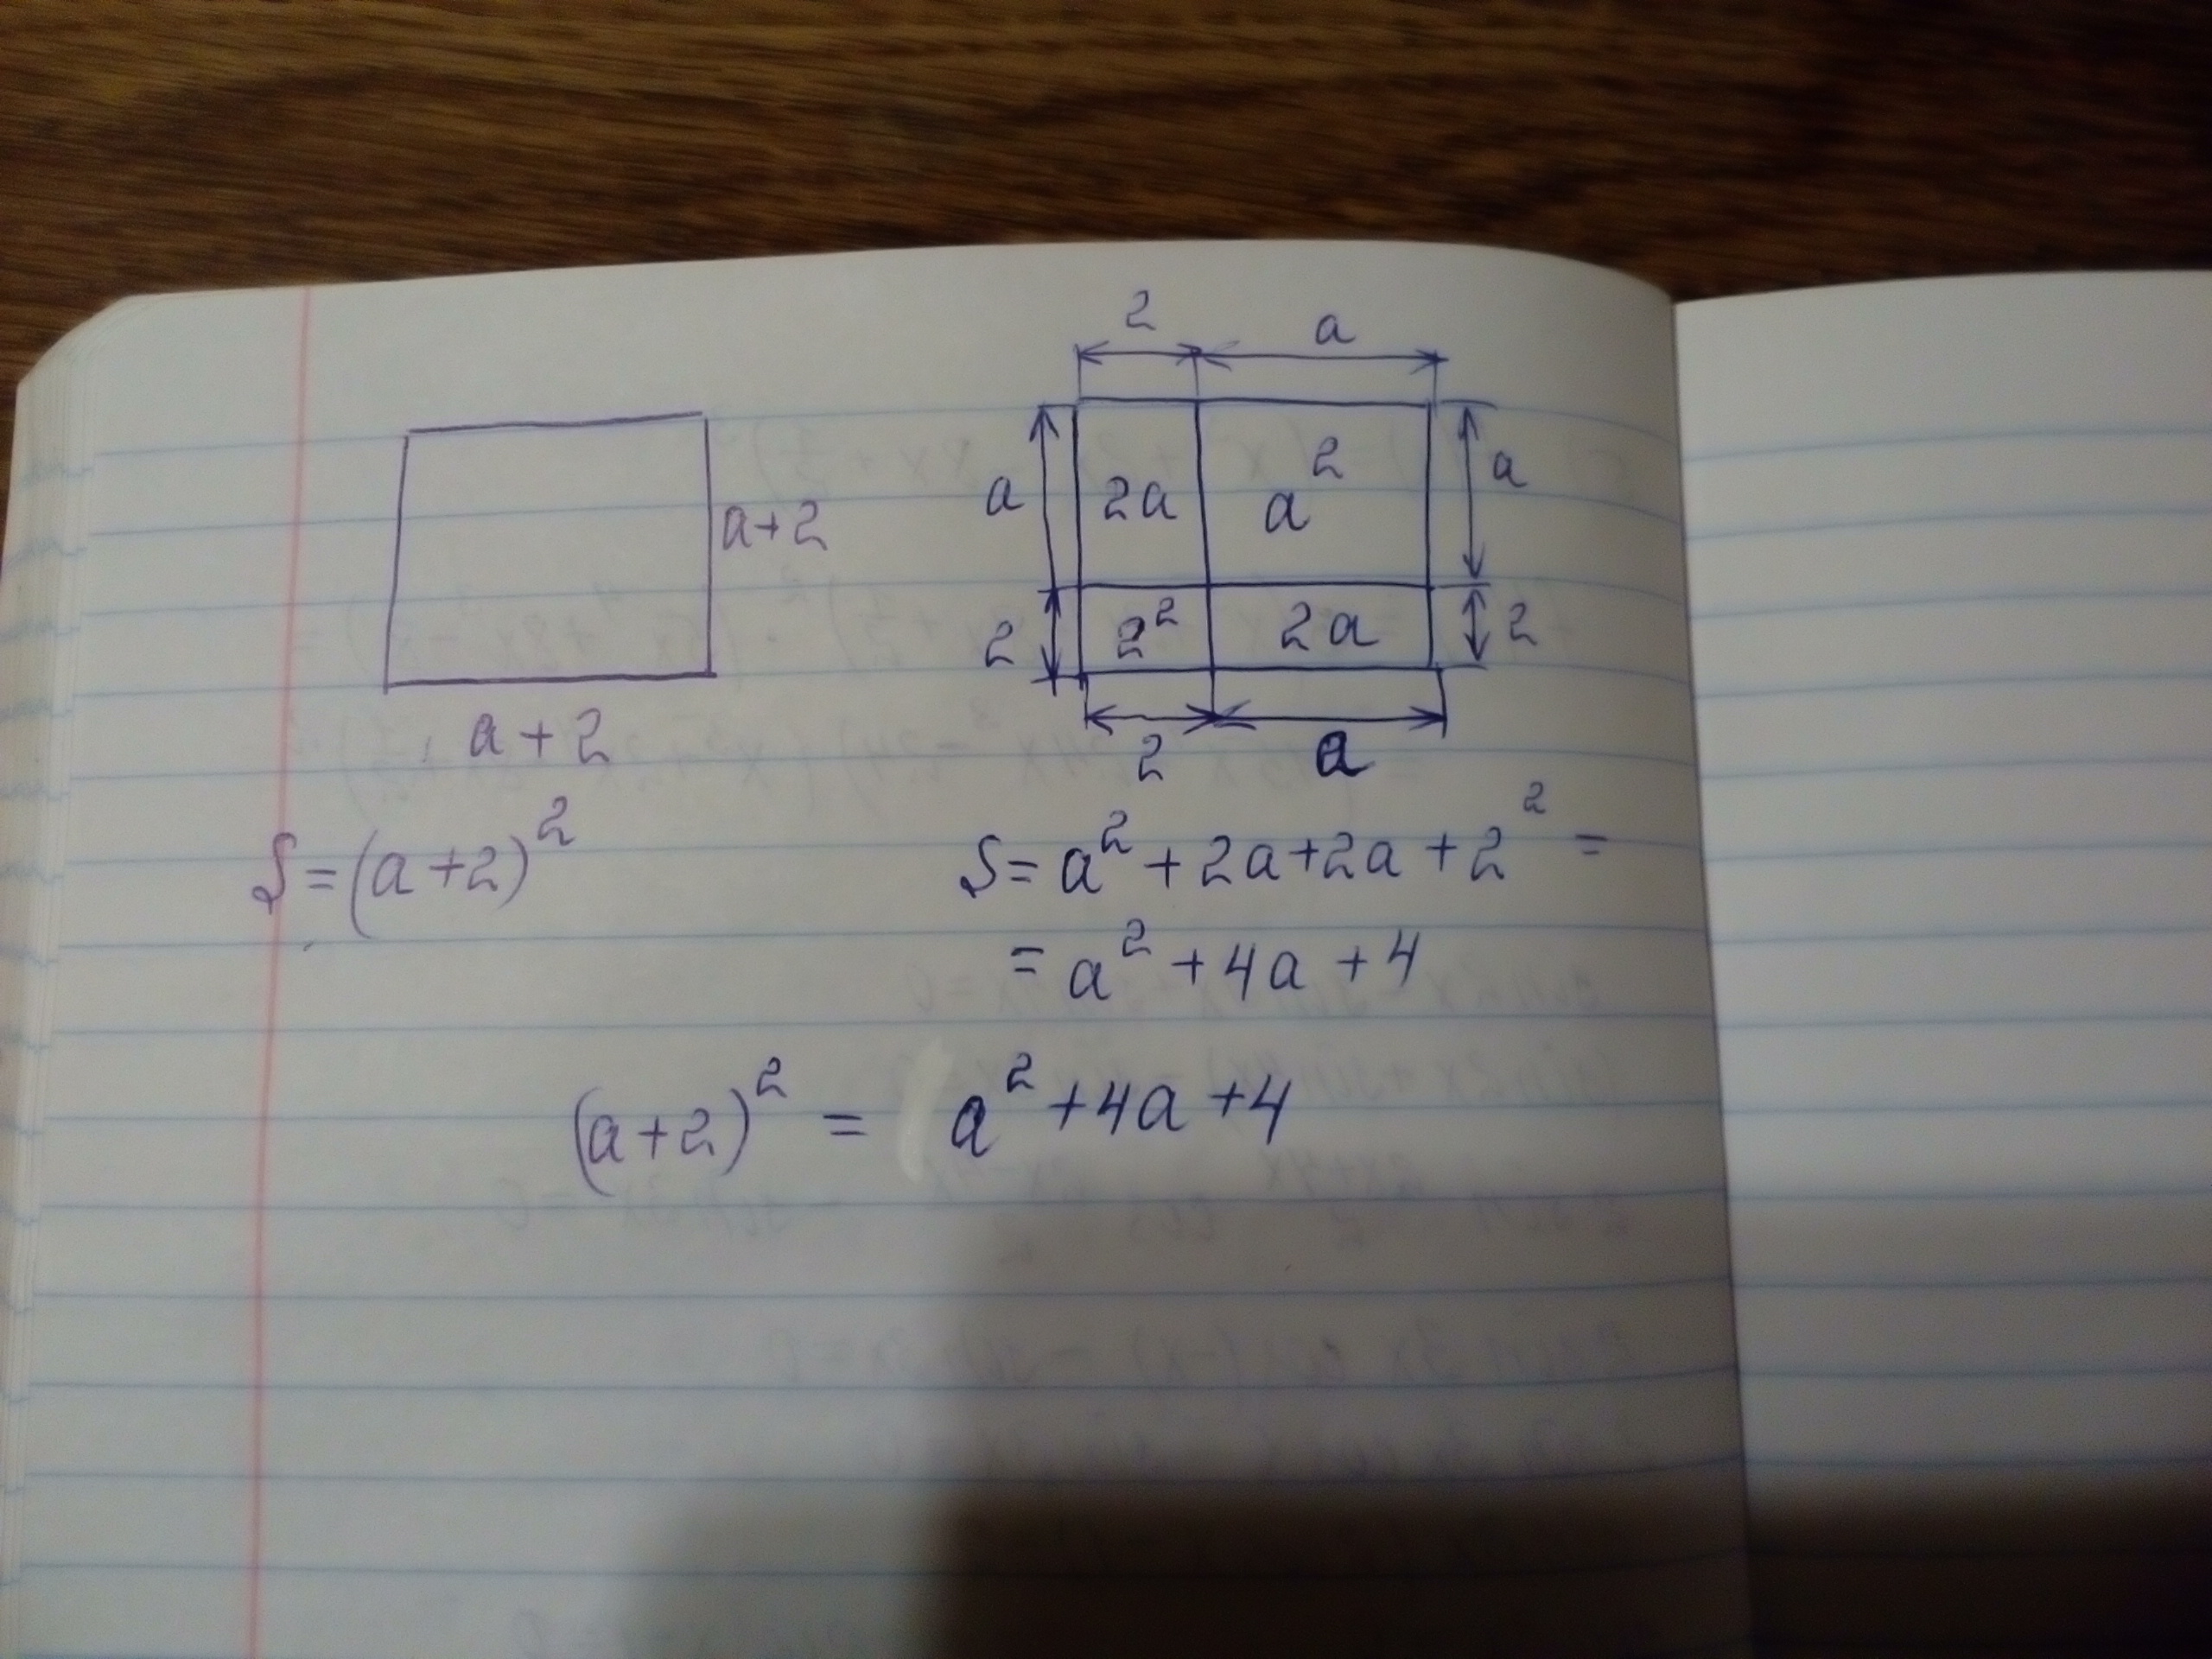 2 a
a 2a a² a
a+2
2 2² 2a 2
2 a
a + 2
S = (a+2)²
S = a² + 2a + 2a + 2² =
= a² + 4a + 4
(a+2)² = a² + 4a + 4